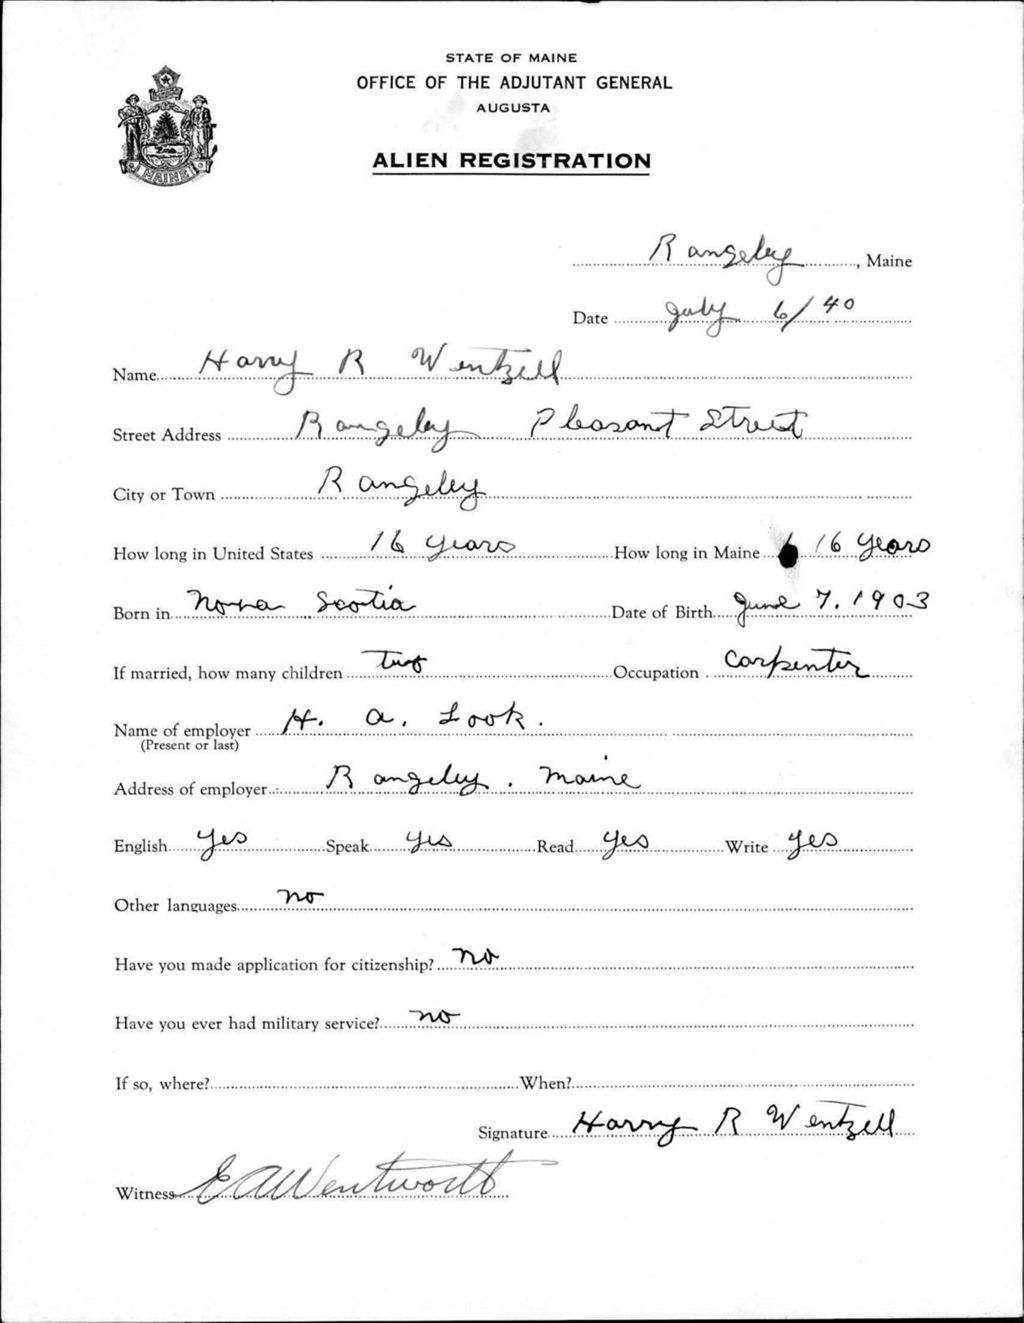 STATE OF MAINE
OFFICE OF THE ADJUTANT GENERAL
AUGUSTA
ALIEN REGISTRATION
MAINE
Rangeley, Maine
Date July 6/40
Name Harry R Wentzell
Street Address Rangeley Pleasant Street
City or Town Rangeley
How long in United States 16 years How long in Maine 16 years
Born in Nova Scotia Date of Birth June 7. 1903
If married, how many children two Occupation Carpenter
Name of employer H. A. Look.
(Present or last)
Address of employer Rangeley. Maine
English yes Speak yes Read yes Write yes
Other languages no
Have you made application for citizenship? no
Have you ever had military service? no
If so, where? When?
Signature Harry R Wentzell
Witness E A Wentworth